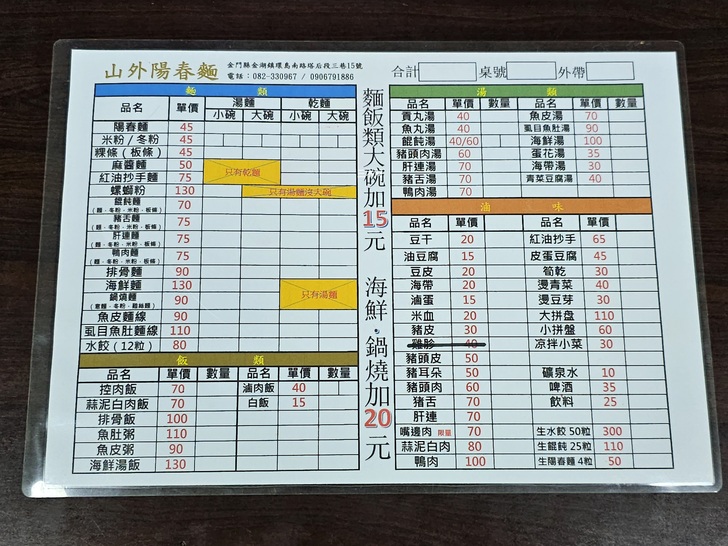 山外陽春麵 金門縣金湖鎮環島南路塔后段三巷15號
電話：082-330967 / 0906791886
合計 桌號 外帶
麵 類
品名 單價 湯麵 乾麵
小碗 大碗 小碗 大碗
陽春麵 45
米粉/冬粉 45
粿條(板條) 45
麻醬麵 50
紅油抄手麵 75
只有乾麵
螺螄粉 130 只有湯麵沒大碗
餛飩麵 70
(麵、冬粉、米粉、板條)
豬舌麵 75
(麵、冬粉、米粉、板條)
肝連麵 75
(麵、冬粉、米粉、板條)
鴨肉麵 75
(麵、冬粉、米粉、板條)
排骨麵 90
海鮮麵 130
鍋燒麵 90
只有湯麵
魚皮麵線 90
虱目魚肚麵線 110
水餃(12粒) 80
飯 類
品名 單價 數量 品名 單價 數量
控肉飯 70 滷肉飯 40
蒜泥白肉飯 70 白飯 15
排骨飯 100
魚肚粥 110
魚皮粥 90
海鮮湯飯 130
麵飯類大碗加15元 海鮮·鍋燒加20元
湯 類
品名 單價 數量 品名 單價 數量
貢丸湯 40 魚皮湯 70
魚丸湯 40 虱目魚肚湯 90
餛飩湯 40/60 海鮮湯 100
豬頭肉湯 60 蛋花湯 35
肝連湯 70 紫菜湯 35
豬舌湯 70 青菜豆腐湯 40
鴨肉湯 70
滷 味
品名 單價 品名 單價
豆干 20 紅油抄手 65
油豆腐 15 皮蛋豆腐 45
豆皮 20 筍乾 30
海帶 20 燙青菜 40
滷蛋 15 燙豆芽 30
米血 20 大拼盤 110
豬皮 30 小拼盤 60
雞胗 40 涼拌小菜 30
豬頭皮 50
豬耳朵 50 礦泉水 10
豬頭肉 60 啤酒 35
豬舌 70 飲料 25
肝連 70
嘴邊肉 限量 70 生水餃 50粒 300
蒜泥白肉 80 生餛飩 25粒 110
鴨肉 100 生陽春麵 4粒 50